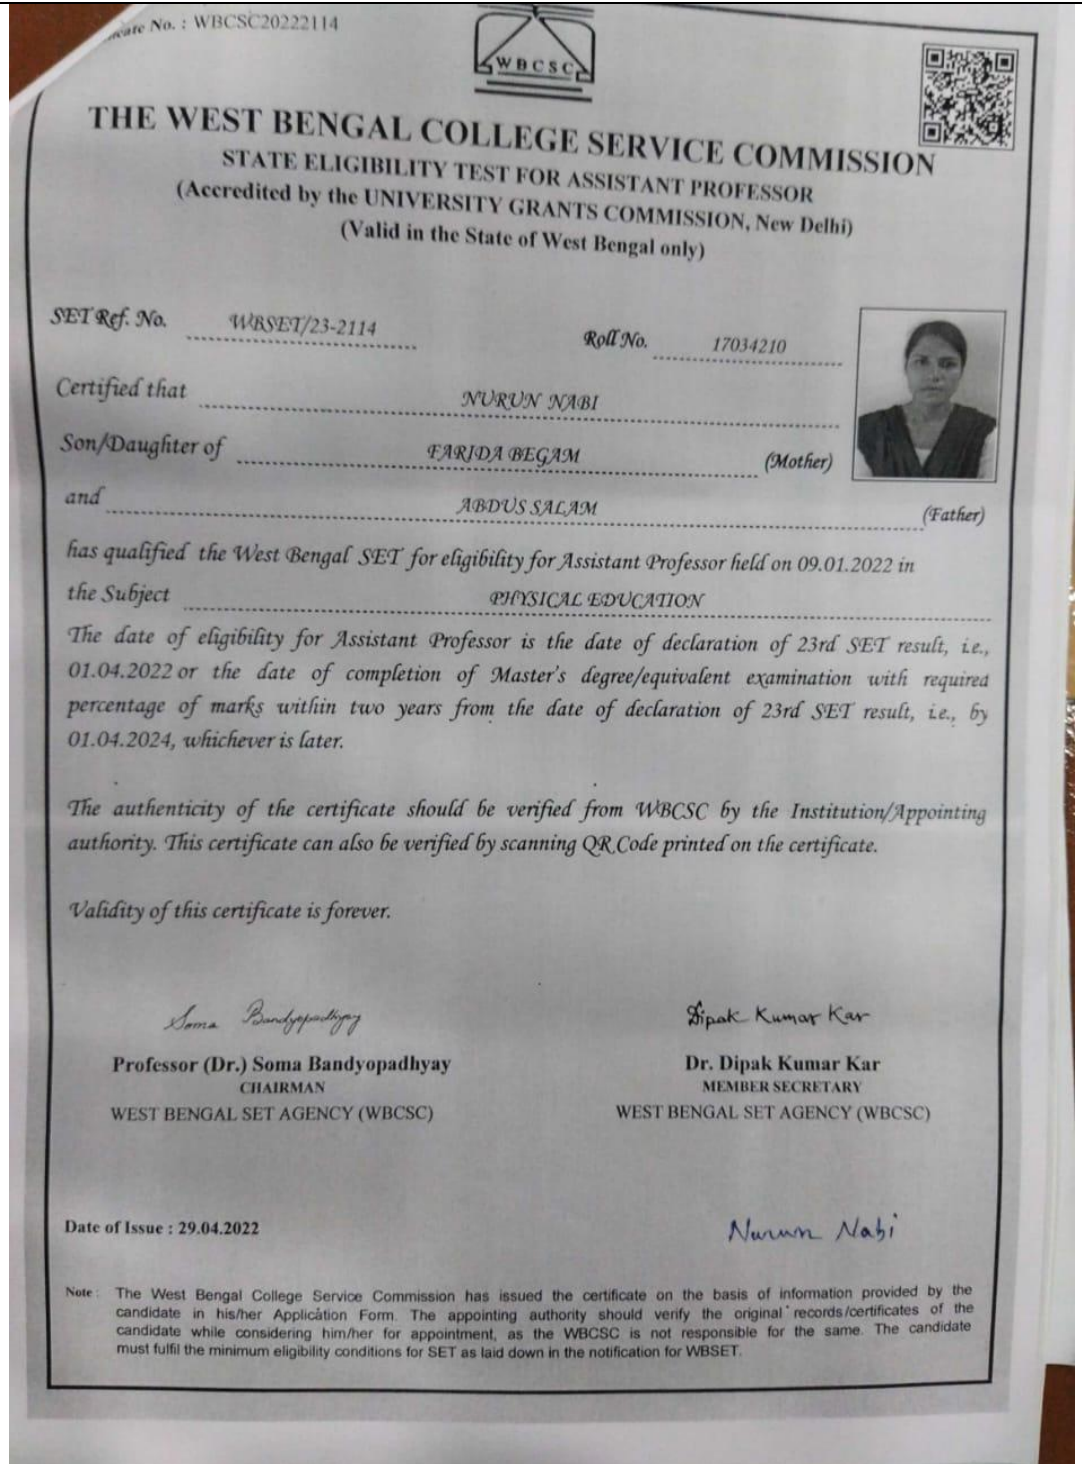 cate No. : WBCSC20222114
WBCSC
THE WEST BENGAL COLLEGE SERVICE COMMISSION
STATE ELIGIBILITY TEST FOR ASSISTANT PROFESSOR
(Accredited by the UNIVERSITY GRANTS COMMISSION, New Delhi)
(Valid in the State of West Bengal only)
SET Ref. No. WBSET/23-2114 Roll No. 17034210
Certified that NURUN NABI
Son/Daughter of FARIDA BEGAM (Mother)
and ABDUS SALAM (Father)
has qualified the West Bengal SET for eligibility for Assistant Professor held on 09.01.2022 in
the Subject PHYSICAL EDUCATION
The date of eligibility for Assistant Professor is the date of declaration of 23rd SET result, i.e.,
01.04.2022 or the date of completion of Master's degree/equivalent examination with required
percentage of marks within two years from the date of declaration of 23rd SET result, i.e., by
01.04.2024, whichever is later.
The authenticity of the certificate should be verified from WBCSC by the Institution/Appointing
authority. This certificate can also be verified by scanning QR Code printed on the certificate.
Validity of this certificate is forever.
Soma Bandyopadhyay Dipak Kumar Kar
Professor (Dr.) Soma Bandyopadhyay Dr. Dipak Kumar Kar
CHAIRMAN MEMBER SECRETARY
WEST BENGAL SET AGENCY (WBCSC) WEST BENGAL SET AGENCY (WBCSC)
Date of Issue : 29.04.2022 Nurun Nabi
Note : The West Bengal College Service Commission has issued the certificate on the basis of information provided by the
candidate in his/her Application Form. The appointing authority should verify the original records/certificates of the
candidate while considering him/her for appointment, as the WBCSC is not responsible for the same. The candidate
must fulfil the minimum eligibility conditions for SET as laid down in the notification for WBSET.